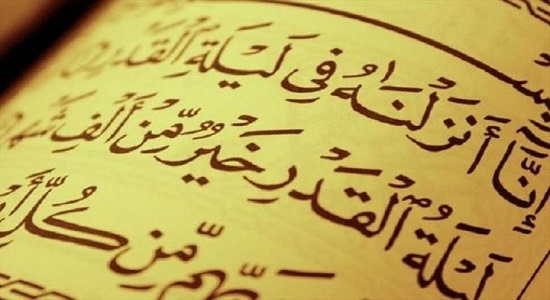 إِنَّآ أَنزَلْنَٰهُ فِى لَيْلَةِ ٱلْقَدْرِ
لَيْلَةُ ٱلْقَدْرِ خَيْرٌ مِّنْ أَلْفِ شَهْرٍ
مِّن كُلِّ